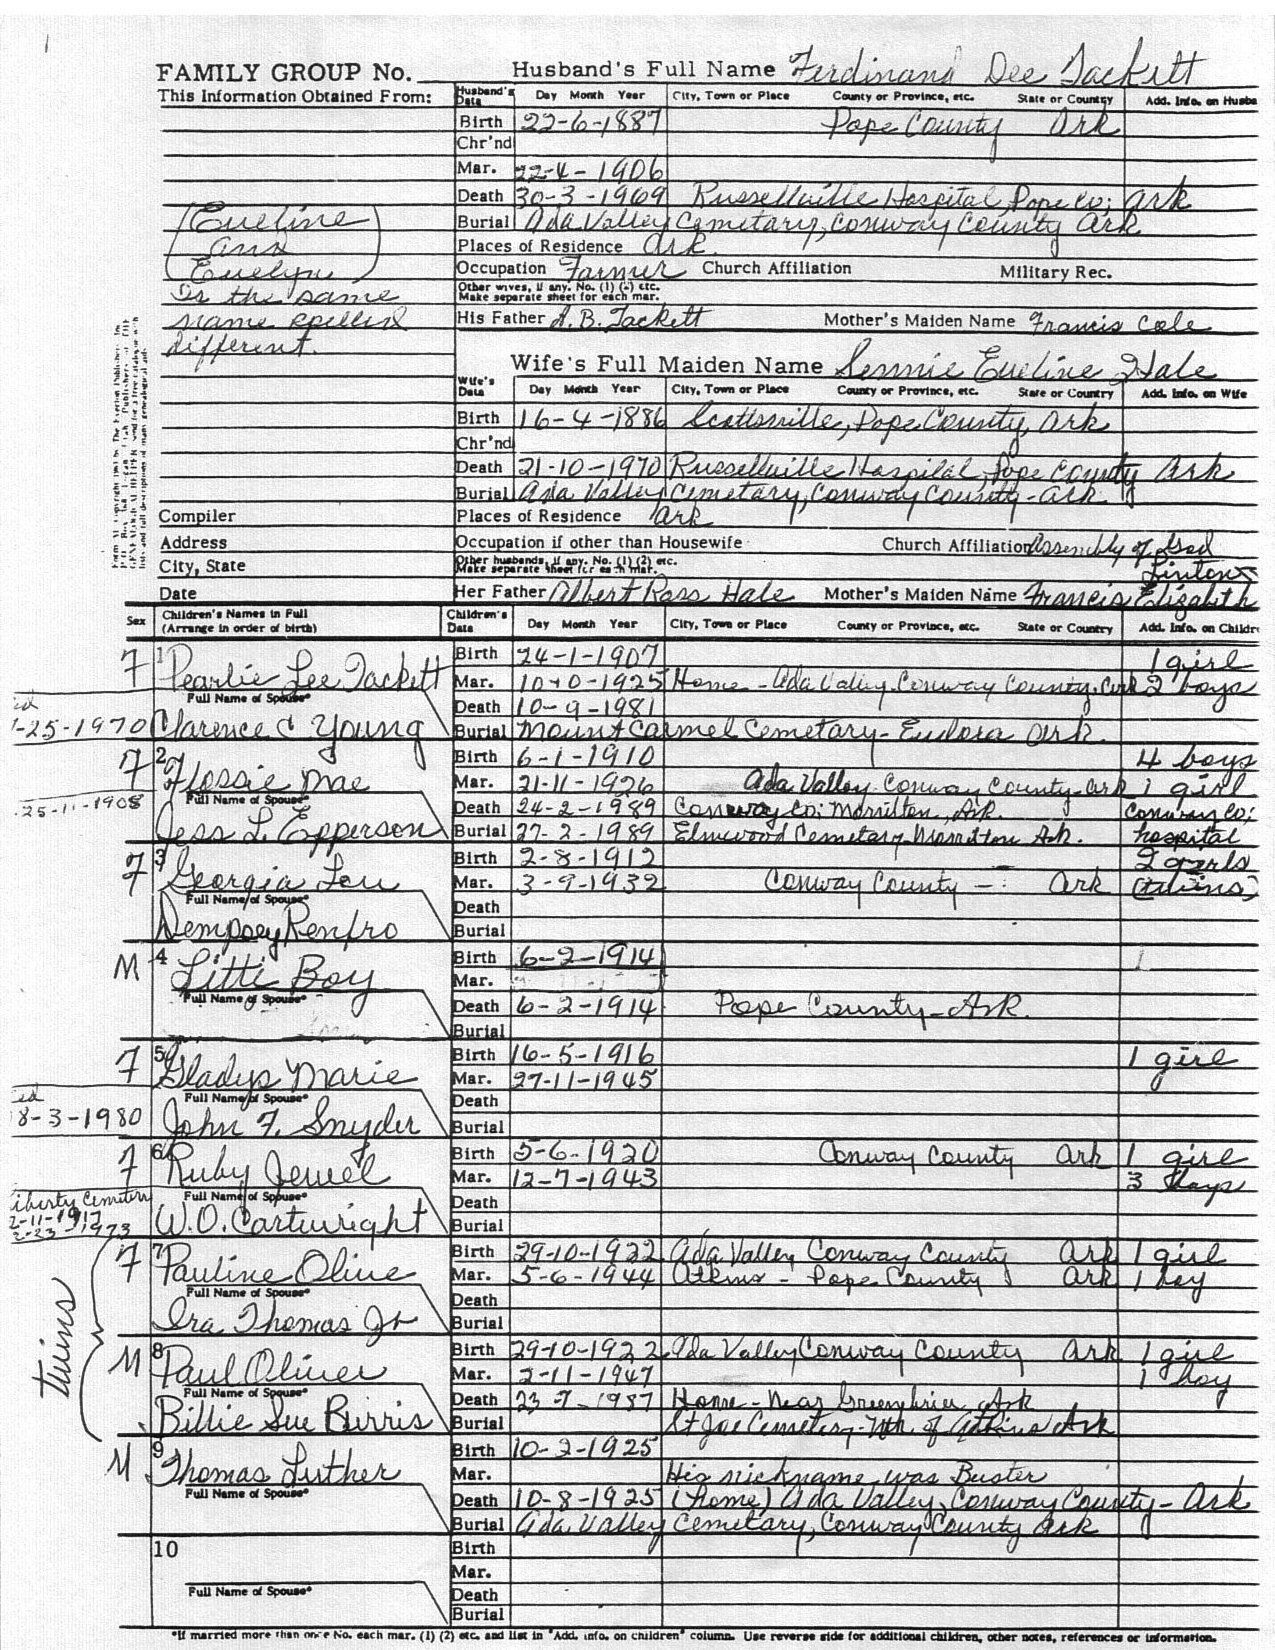 1
FAMILY GROUP No. Husband's Full Name Ferdinand Dee Tackett
This Information Obtained From: Husband's Data Day Month Year City, Town or Place County or Province, etc. State or Country Add. Info. on Husba
Birth 22-6-1887 Pope County Ark
Chr'nd
Mar. 22-4-1906
Death 30-3-1969 Russellville Hospital, Pope Co; Ark
(Eveline Burial Ada Valley Cemetary, Conway County Ark
and Places of Residence Ark.
Evelyn) Occupation Farmer Church Affiliation Military Rec.
Is the same Other wives, if any. No. (1) (2) etc. Make separate sheet for each mar.
name spelled His Father A. B. Tackett Mother's Maiden Name Francis Cole
different.
Wife's Full Maiden Name Lennie Eveline Hale
Wife's Data Day Month Year City, Town or Place County or Province, etc. State or Country Add. Info. on Wife
Birth 16-4-1886 Scottsville, Pope County, Ark
Chr'nd
Death 21-10-1970 Russellville Hospital, Pope County Ark
Burial Ada Valley Cemetary, Conway County - Ark
Compiler Places of Residence Ark
Address Occupation if other than Housewife Church Affiliation Assembly of God
City, State Other husbands, if any. No. (1) (2) etc. Make separate sheet for each mar. Linton
Date Her Father Albert Ross Hale Mother's Maiden Name Francis Elizabeth
Sex Children's Names in Full (Arrange in order of birth) Children's Data Day Month Year City, Town or Place County or Province, etc. State or Country Add. Info. on Childre
F 1 Pearlie Lee Tackett Birth 24-1-1907 1 girl
Mar. 10-0-1925 Home - Ada Valley, Conway County, Ark 2 boys
ed Full Name of Spouse* Death 10-9-1981
-25-1970 Clarence C Young Burial Mount Carmel Cemetary - Eudora Ark.
F 2 Flossie Mae Birth 6-1-1910 4 boys
Mar. 21-11-1926 Ada Valley Conway County - Ark 1 girl
25-11-1908 Full Name of Spouse* Death 24-2-1989 Conway Co; Morrilton, Ark. Conway Co;
Jess L. Epperson Burial 27-2-1989 Elmwood Cemetary Morrilton Ark. hospital
F 3 Georgia Lou Birth 2-8-1912 2 girls
Mar. 3-9-1932 Conway County - Ark (twins)
Full Name of Spouse* Death
Dempsey Renfro Burial
M 4 Littl Boy Birth 6-2-1914
Mar.
Full Name of Spouse* Death 6-2-1914 Pope County - Ark.
Burial
F 5 Gladys Marie Birth 16-5-1916 1 girl
Mar. 27-11-1945
ed Full Name of Spouse* Death
8-3-1980 John F. Snyder Burial
F 6 Ruby Jewel Birth 5-6-1920 Conway County Ark 1 girl
Mar. 12-7-1943 3 boys
iberty Cemetery Full Name of Spouse* Death
2-11-1917 W.O. Cartwright Burial
2-23-1973
F 7 Pauline Olive Birth 29-10-1922 Ada Valley Conway County Ark 1 girl
Mar. 5-6-1944 Atkins - Pope County Ark 1 boy
Full Name of Spouse* Death
Ira Thomas Jr Burial
twins
M 8 Paul Oliver Birth 29-10-1922 Ada Valley Conway County Ark 1 girl
Mar. 2-11-1947 1 boy
Full Name of Spouse* Death 23-7-1987 Home - Near Greenbrier, Ark
Billie Sue Burris Burial St Joe Cemetery - Nth. of Atkins Ark
M 9 Thomas Luther Birth 10-2-1925
Mar. His nickname was Buster
Full Name of Spouse* Death 10-8-1925 (home) Ada Valley, Conway County - Ark
Burial Ada Valley Cemetary, Conway County Ark
10 Birth
Mar.
Full Name of Spouse* Death
Burial
*If married more than once No. each mar. (1) (2) etc. and list in "Add. info. on children" column. Use reverse side for additional children, other notes, references or information.